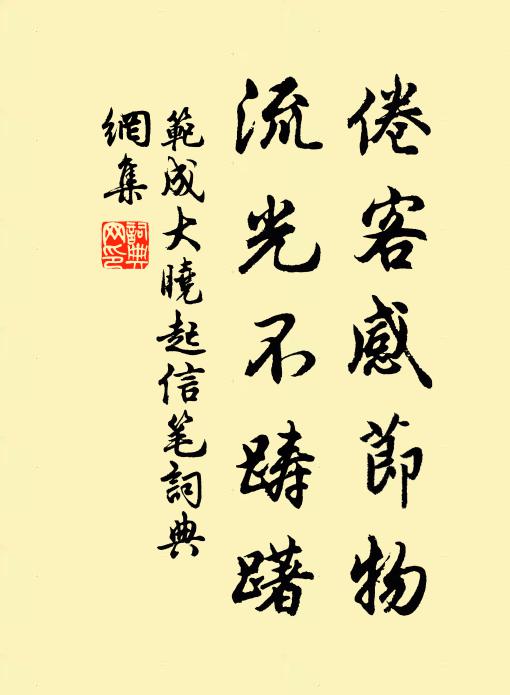 倦客感節物
流光不踌躇
範成大曉起信笔詞典
網集
詞典
网印